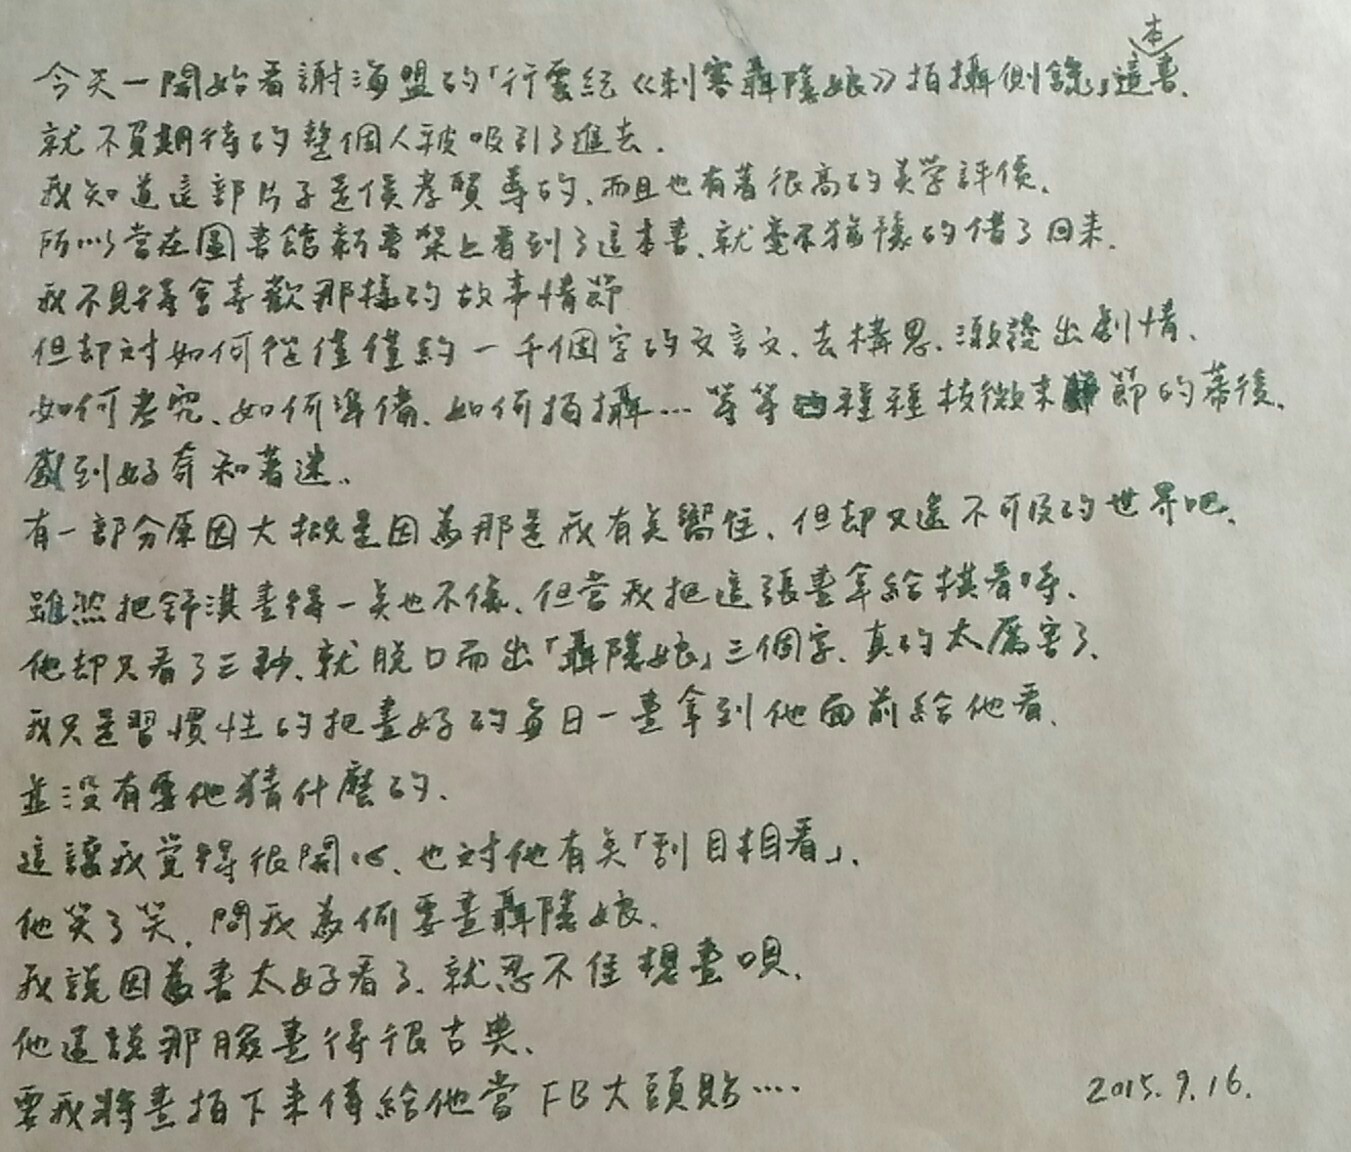 今天一開始看謝海盟的「行雲紀《刺客聶隱娘》拍攝側錄」這本書、
就不負期待的整個人被吸引了進去.
我知道這部片子是侯孝賢導的、而且也有著很高的美学評價、
所以當在圖書館新書架上看到了這本書、就毫不猶豫的借了回來.
我不見得會喜歡那樣的故事情節
但却对如何從僅僅約一千個字的文言文、去構思、激發出劇情、
如何考究、如何準備、如何拍攝…等等種種枝微末節的幕後、
感到好奇和著迷.
有一部分原因大概是因為那是我有点嚮往、但却又遙不可及的世界吧、
雖然把舒淇畫得一点也不像、但當我把這張畫拿給棋看時、
他却只看了三秒、就脫口而出「聶隱娘」三個字、真的太厲害了、
我只是習慣性的把畫好的每日一畫拿到他面前給他看、
並沒有要他猜什麼的、
這讓我覺得很開心、也对他有点「刮目相看」、
他笑了笑、問我為何要畫聶隱娘、
我說因為書太好看了、就忍不住想畫唄、
他還說那臉畫得很古典、
要我將畫拍下來傳給他當FB大頭貼‥‥
2015.9.16.